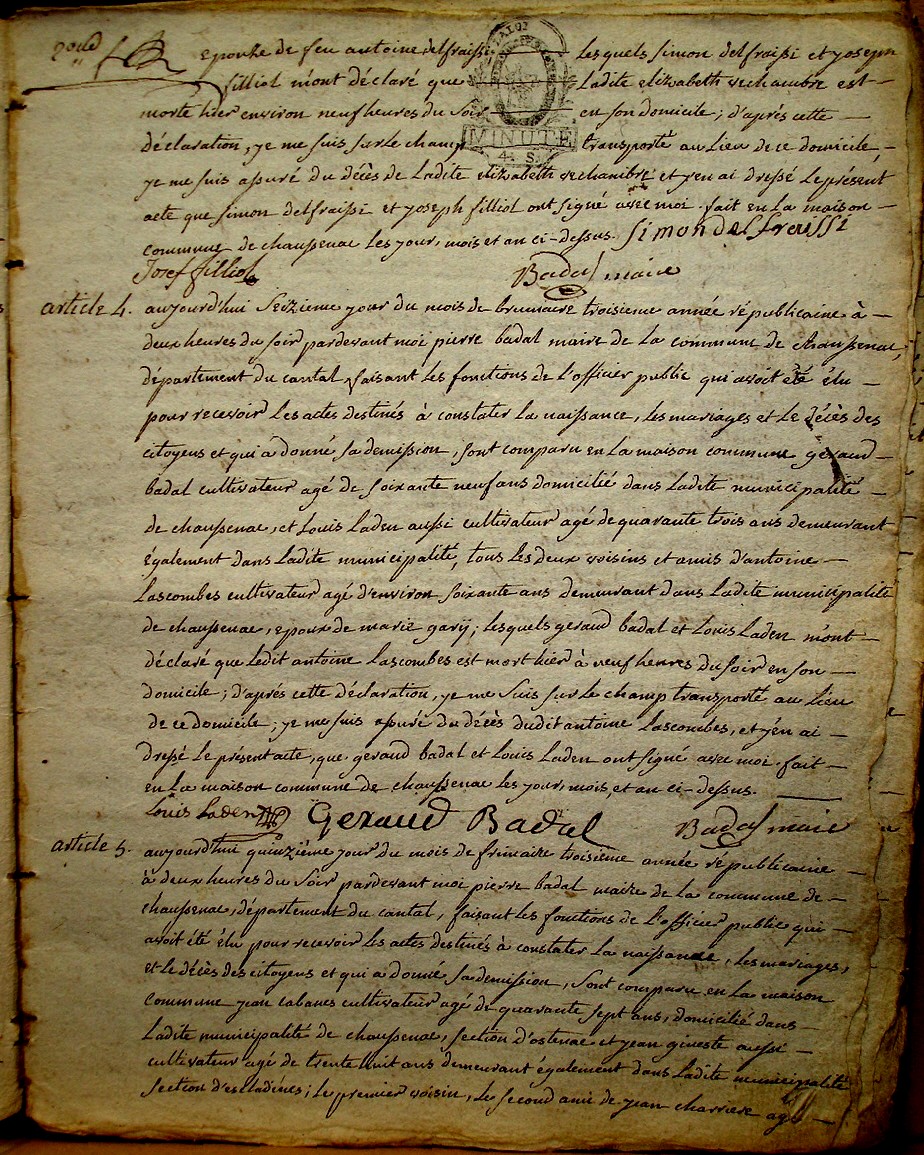 2eme
epouse de feu antoine delfraissi lesquels simon delfraissi et yoseph
filliol m'ont déclaré que ladite elizabeth vechambre est
morte hier environ neuf heures du soir en son domicile; d'après cette
MINUTE
4. S.
déclaration, je me suis sur le champ transporté au lieu de ce domicile,
je me suis assuré du décès de ladite elizabeth vechambre et j'en ai dressé le présent
acte que simon delfraissi et yoseph filliol ont signé avec moi. fait en la maison
commune de chaussenac les jour, mois et an ci-dessus. Simon delfreissi
Josef filliol Badal maire
article 4. aujourd'hui seizieme jour du mois de brumaire troisieme année républicaine à
deux heures du soir pardevant moi pierre badal maire de la commune de chaussenac,
département du cantal, faisant les fonctions de l'officier public qui avoit été élu
pour recevoir les actes destinés à constater la naissance, les mariages et le décès des
citoyens et qui a donné sa demission, sont comparu en la maison commune geraud
badal cultivateur agé de soixante neuf ans domicilié dans ladite municipalité
de chaussenac, et louis laden aussi cultivateur agé de quarante trois ans demeurant
également dans ladite municipalité, tous les deux voisins et amis d'antoine
lascombes cultivateur agé d'environ soixante ans demeurant dans ladite municipalité
de chaussenac, epoux de marie gary; lesquels geraud badal et louis laden m'ont
déclaré que ledit antoine lascombes est mort hier à neuf heures du soir en son
domicile; d'après cette déclaration, je me suis sur le champ transporté au lieu
de ce domicile; je me suis assuré du décès dudit antoine lascombes, et j'en ai
dressé le présent acte, que geraud badal et louis laden ont signé avec moi. fait
en la maison commune de chaussenac les jour, mois, et an ci-dessus.
Louis Laden Geraud Badal Badal maire
article 5. aujourd'hui quinzième jour du mois de frimaire troisième année républicaine
à deux heures du soir pardevant moi pierre badal maire de la commune de
chaussenac, département du cantal, faisant les fonctions de l'officier public qui
avoit été élu pour recevoir les actes destinés à constater la naissance, les mariages,
et le décès des citoyens et qui a donné sa demission, sont comparu en la maison
commune jean cabanes cultivateur agé de quarante sept ans, domicilié dans
ladite municipalité de chaussenac, section d'ostenac et jean gineste aussi
cultivateur agé de trente huit ans demeurant également dans ladite municipalité
section d'escladines; le premier voisin, le second ami de jean charriere agé